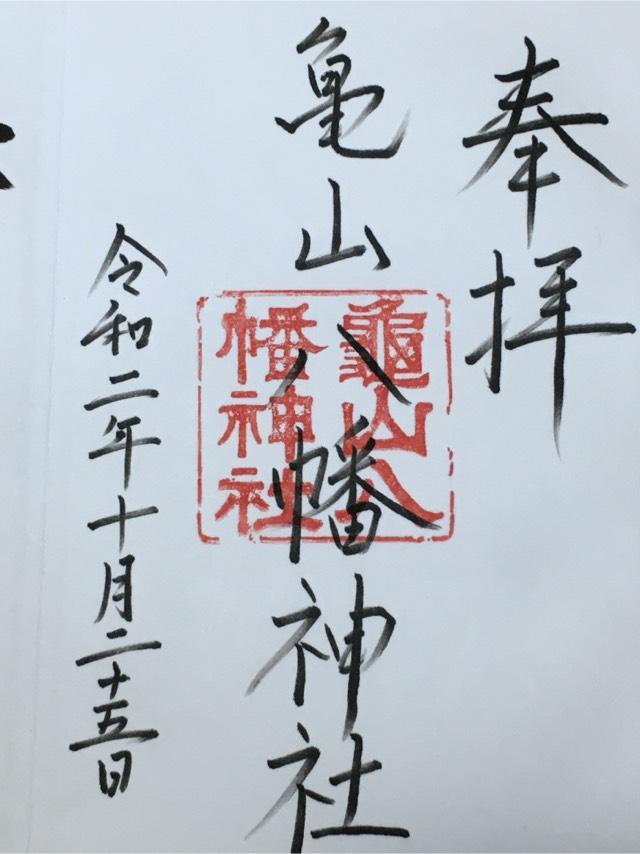 奉拝
亀山八幡神社
龜山八
幡神社
令和二年十月二十五日